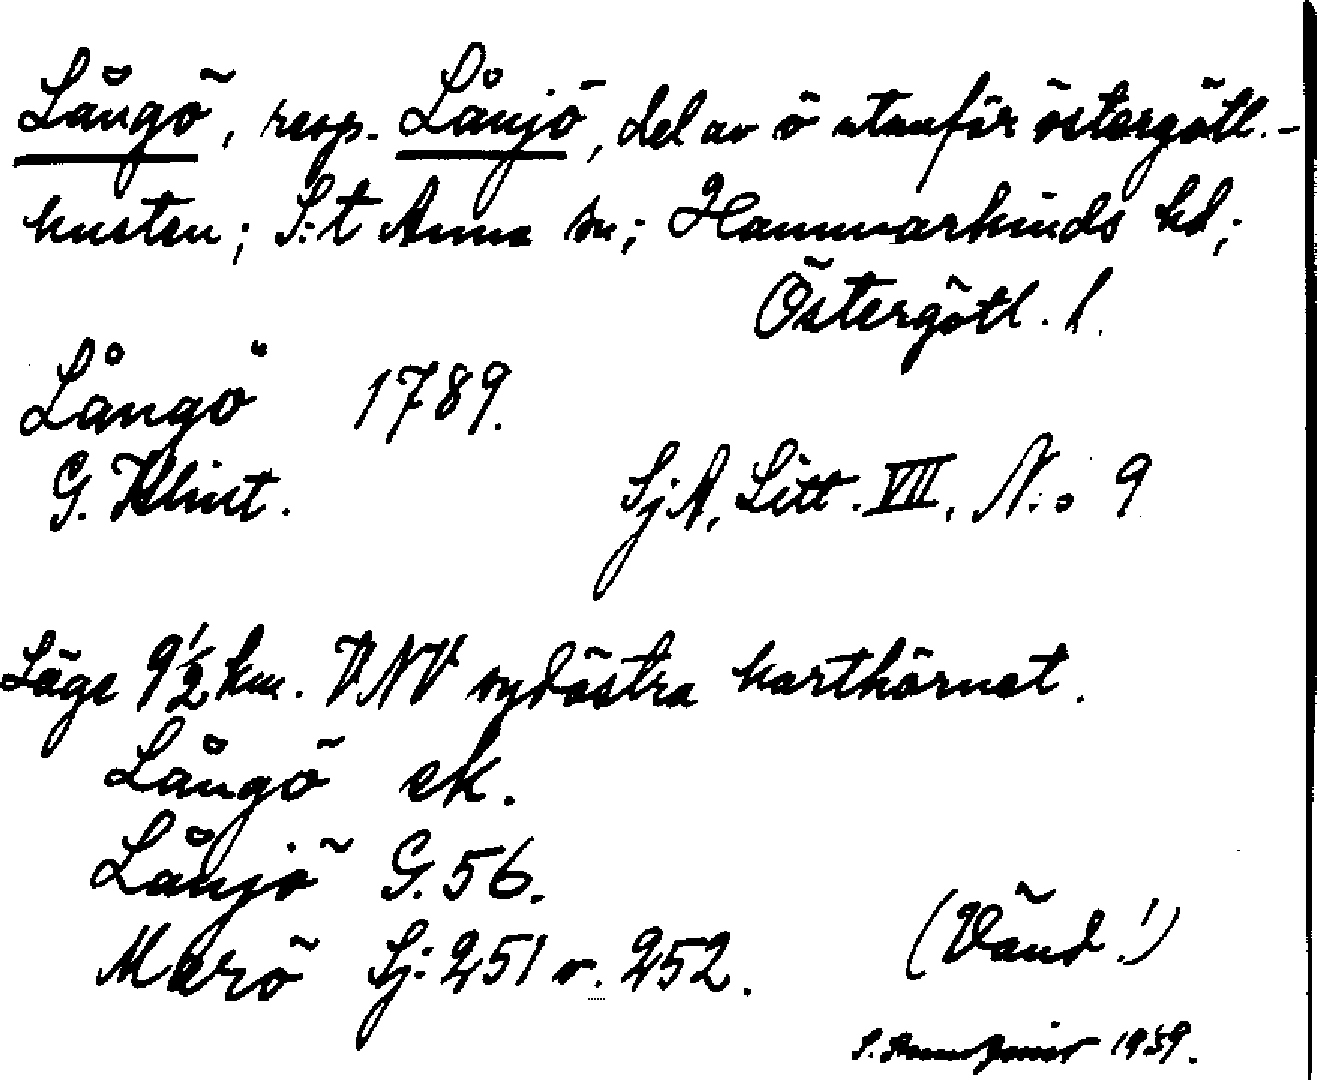 Långö, resp. Lånjö, del av ö utanför östergötl.-
kusten; S:t Anna sn; Hammarkinds hd;
Östergötl. l.
Långö 1789.
G. Klint. SjA, Litt. VII, N:o 9
Läge 9½ km. VNV sydöstra karthörnet.
Långö ek.
Lånjö G. 56.
Marö Sj: 251 o. 252.
(Vänd!)
1939.